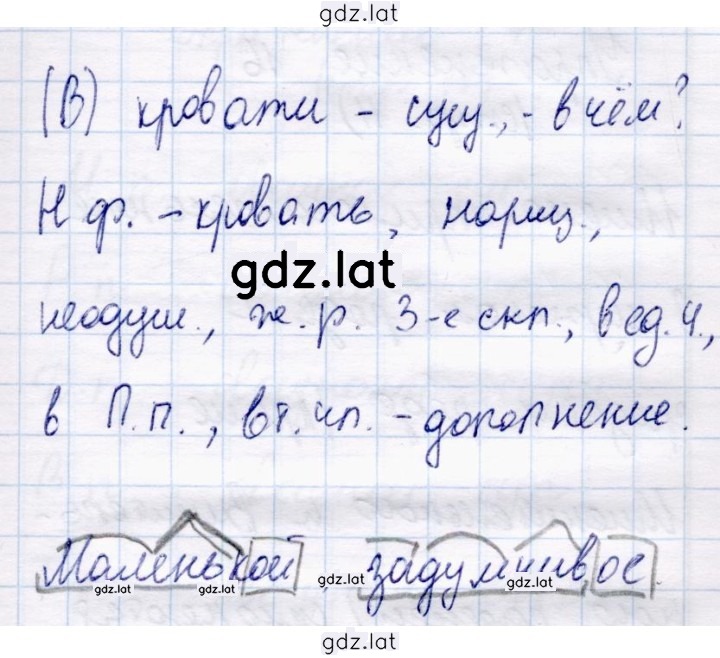 gdz.lat
(В) кровати – сущ., – в чём?
Н ф. – кровать, нариц.,
gdz.lat
неодуш., ж. р. 3-е скл., в ед. ч.,
в П. п., вт. чл. – дополнение.
Маленькой, задумчивое.
gdz.lat gdz.lat gdz.lat gdz.lat gdz.lat
gdz.lat